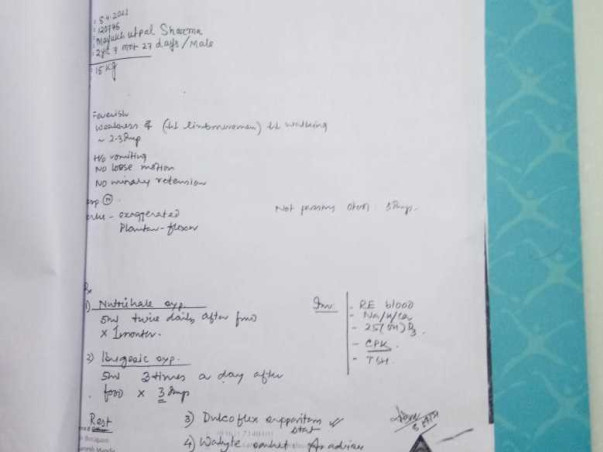 : 5.4.2022
: 120795
: Mayukh utpal Sharma
2yrs 7 mot 27 days / Male
15 kg
Feverish
Weakness of (bl limb movemen) bl walking
~ 2-3 days
H/o vomiting
No loose motion
No urinary retension
Not passing stool 3 days.
- exaggerated
Plantar - flexor
1) Nutrihale syp.
5ml twice daily after food
x 1 month.
2) Ibugesic syp.
5ml 3 times a day after
food x 3 days
Inv:
- RE blood
- Na/K/Ca
- 25(OH)D3.
- CPK
- TSH.
Rest
3) Dulcoflex suppository
stat
4) Walyte